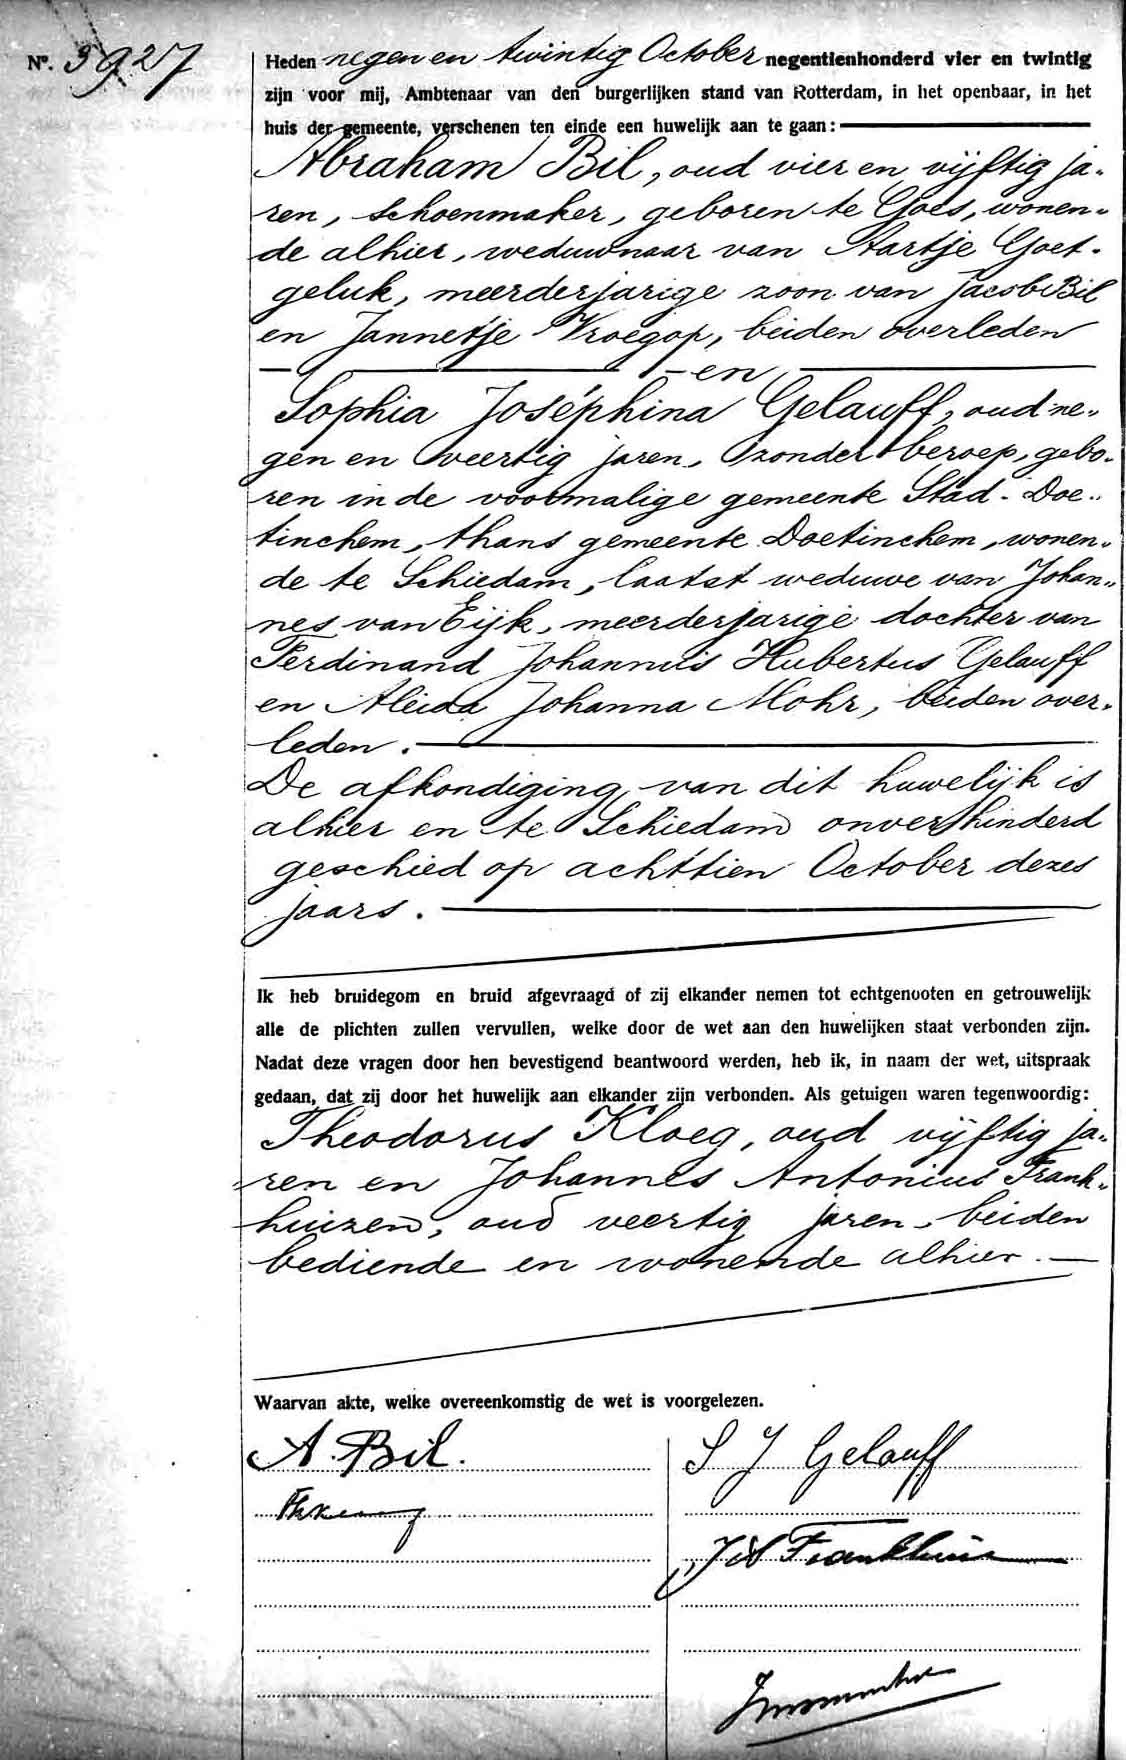 No. 3927
Heden negen en twintig October negentienhonderd vier en twintig
zijn voor mij, Ambtenaar van den burgerlijken stand van Rotterdam, in het openbaar, in het
huis der gemeente, verschenen ten einde een huwelijk aan te gaan:
Abraham Bil, oud vier en vijftig ja-
ren, schoenmaker, geboren te Goes, wonen-
de alhier, weduwnaar van Aartje Goet-
geluk, meerderjarige zoon van Jacob Bil
en Jannetje Vroegop, beiden overleden
- en
Sophia Joséphina Gelauff, oud ne-
gen en veertig jaren, zonder beroep, gebo-
ren in de voormalige gemeente Stad-Doe-
tinchem, thans gemeente Doetinchem, wonen-
de te Schiedam, laatst weduwe van Johan-
nes van Eijk, meerderjarige dochter van
Ferdinand Johannus Hubertus Gelauff
en Aleida Johanna Mohr, beiden over-
leden.
De afkondiging van dit huwelijk is
alhier en te Schiedam onverhinderd
geschied op achttien October dezes
jaars.
Ik heb bruidegom en bruid afgevraagd of zij elkander nemen tot echtgenooten en getrouwelijk
alle de plichten zullen vervullen, welke door de wet aan den huwelijken staat verbonden zijn.
Nadat deze vragen door hen bevestigend beantwoord werden, heb ik, in naam der wet, uitspraak
gedaan, dat zij door het huwelijk aan elkander zijn verbonden. Als getuigen waren tegenwoordig:
Theodorus Kloeg, oud vijftig ja-
ren en Johannes Antonius Frank-
huizen, oud veertig jaren, beiden
bediende en wonende alhier.
Waarvan akte, welke overeenkomstig de wet is voorgelezen.
A. Bil.
S J Gelauff
JA Frankhuize